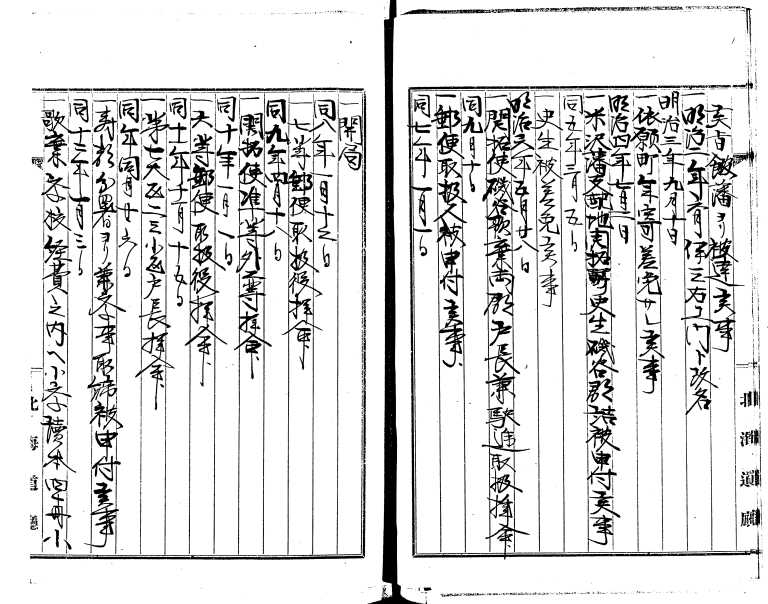 明治二年六月 伊三右ヱ門ト改名
明治三年九月十日
一依願町年寄差免サレ候事
明治四年七月二日
一米沢藩支配地開拓史生磯谷郡詰被申付候事
同五年三月五日
一史生被差免候事
明治六年五月廿八日
一開拓使磯谷歌棄両郡戸長兼駅逓取扱拝命
同九月十日
一郵便取扱人被申付候事
同七年一月一日
北海道廳
一開局
同八年一月十二日
一七等郵便取扱役拝命
同九年四月十八日
一開拓使准等外一等拝命
同十年一月一日
一六等郵便取扱役拝命
同十一年十二月十五日
一第七大区二三小区戸長拝命
同年同月廿六日
一寿都分署ヨリ兼学事取締被申付候事
同十二年一月三日
一歌棄学校経費之内ヘ小学読本四冊小
北海道廳